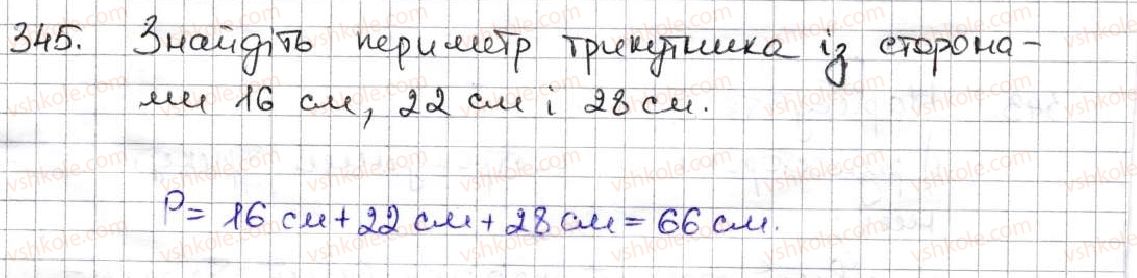 345. Знайдіть периметр трикутника із сторона-
ми 16 см, 22 см і 28 см.
P = 16 см + 22 см + 28 см = 66 см.